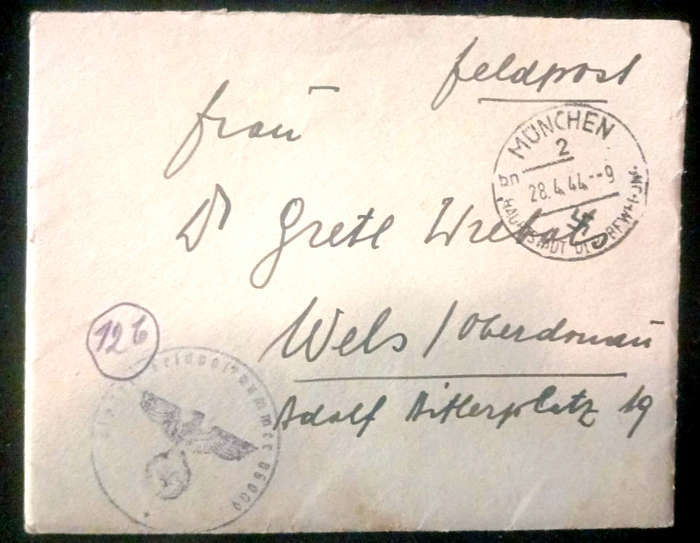 Feldpost
MÜNCHEN
2
bn 28.4.44.--9
HAUPTSTADT DER BEWEGUNG
Frau
Dr Grete
Wels / Oberdonau
Adolf Hitlerplatz 19
12b
Feldpostnummer 06000